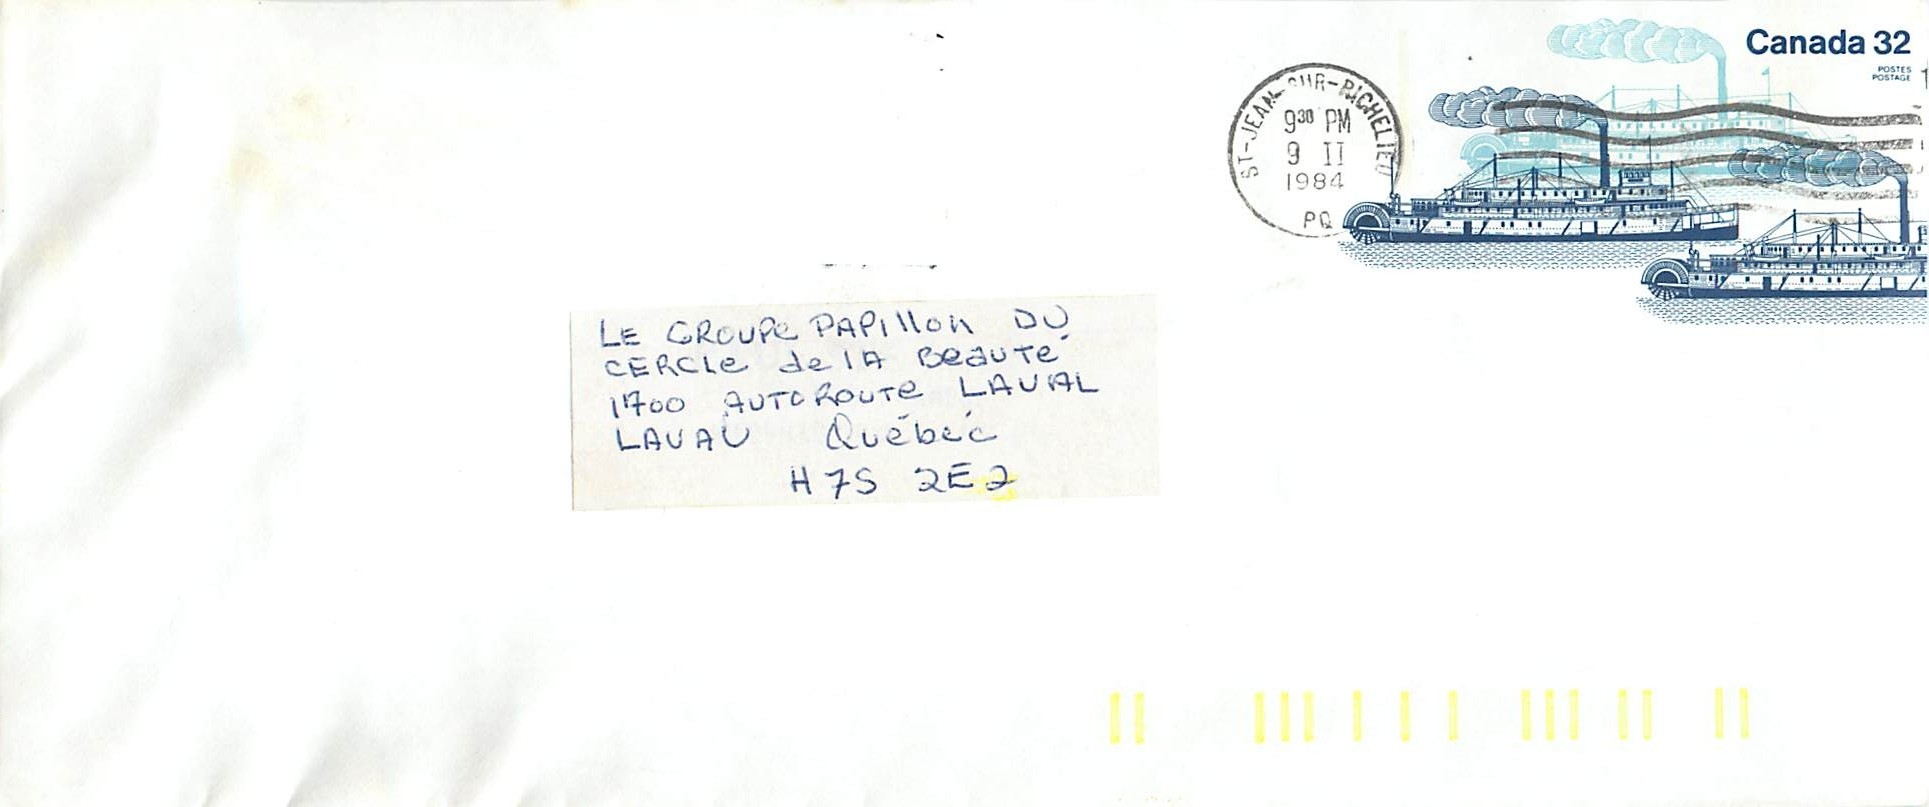 Canada 32
POSTES
POSTAGE
ST-JEAN-SUR-RICHELIEU
9³⁰ PM
9 II
1984
PQ
LE GROUPe PAPillon DU
CERCle de lA Beauté
1700 AUTOROUTe LAVAL
LAVAL Québéc
H7S 2E2